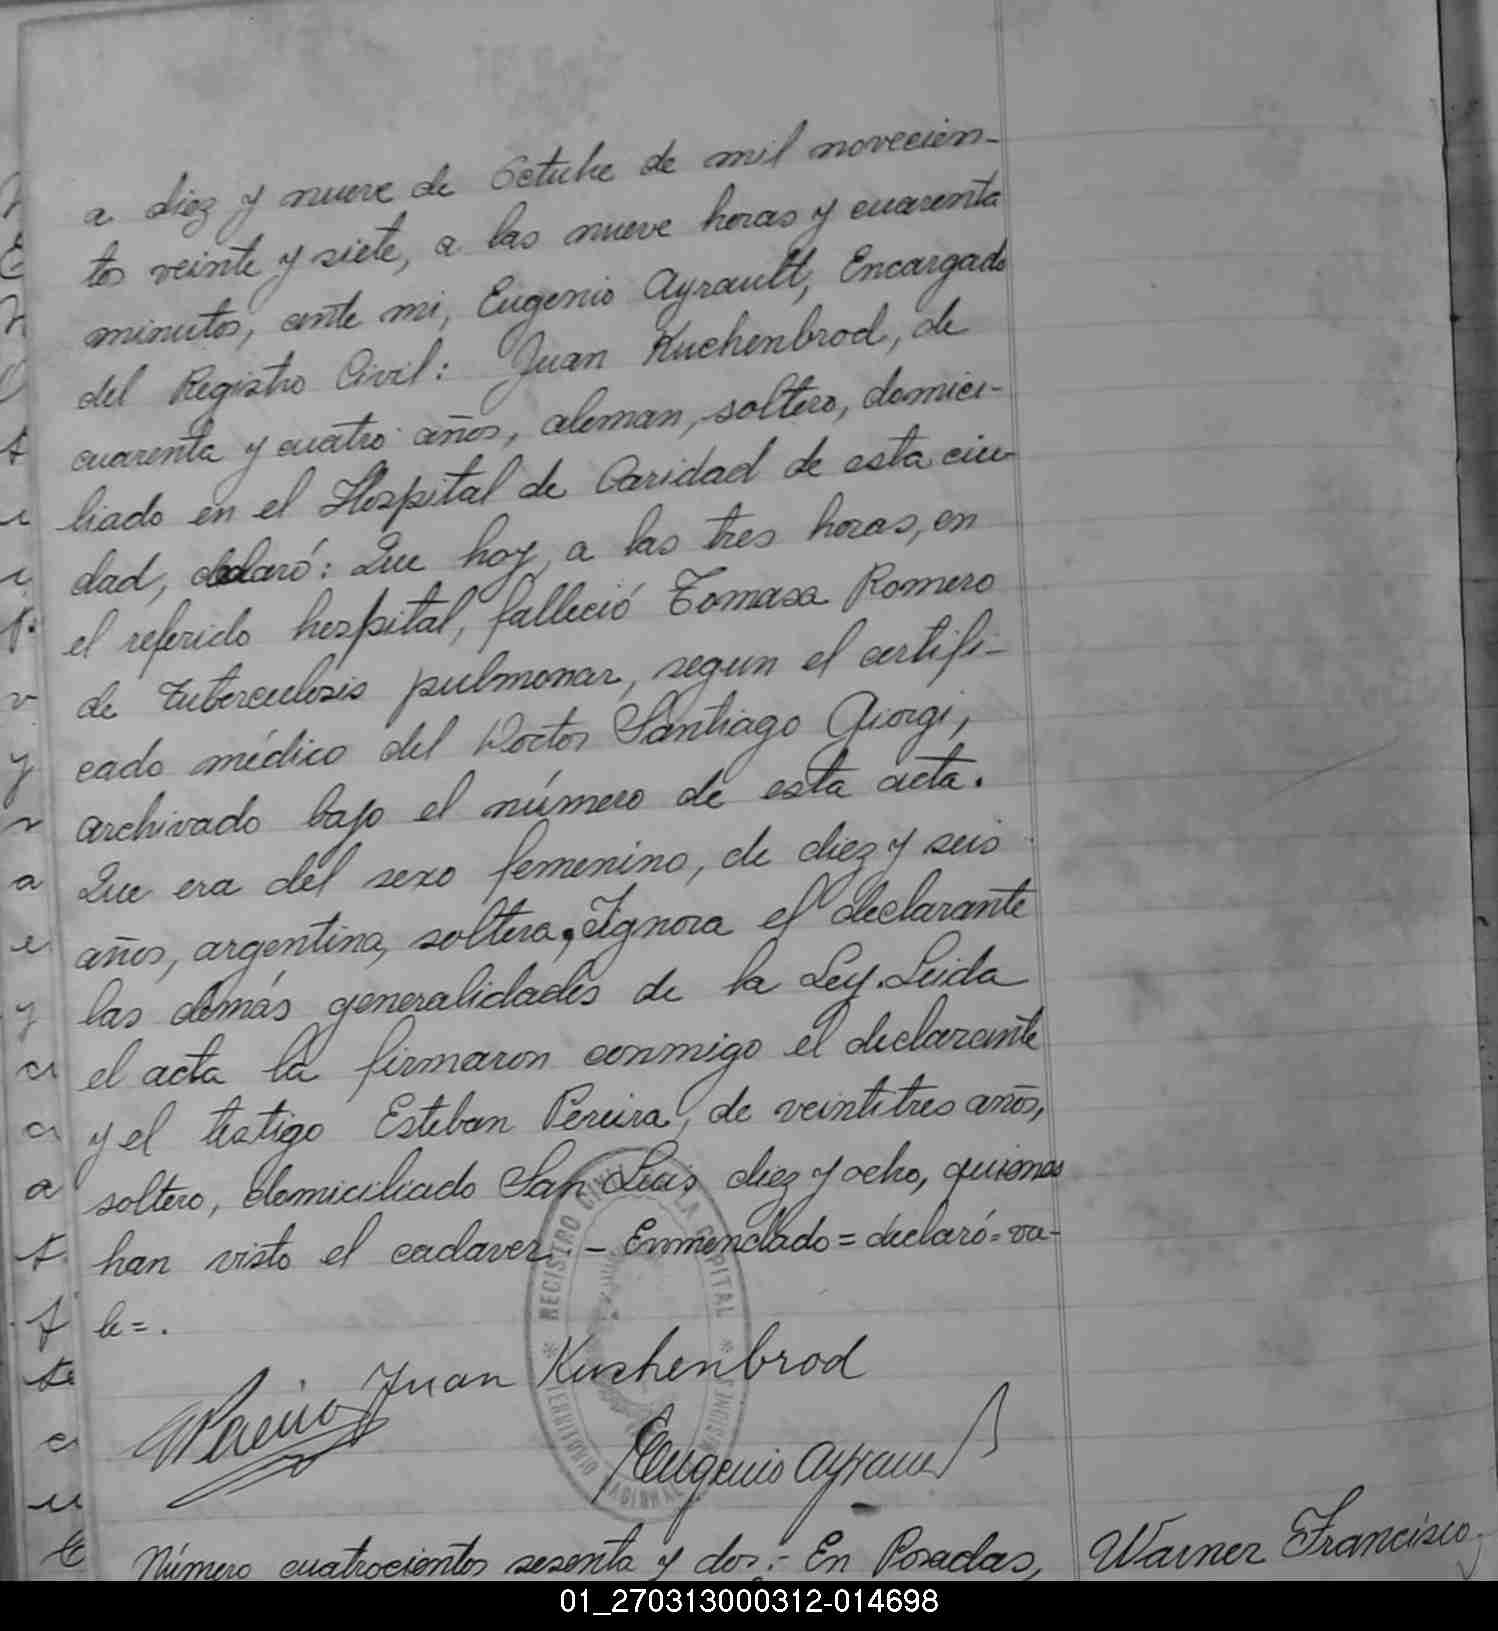 a diez y nueve de Octubre de mil novecien-
tos veinte y siete, a las nueve horas y cuarenta
minutos, ante mi, Eugenio Ayrault, Encargado
del Registro Civil: Juan Kuchenbrod, de
cuarenta y cuatro años, aleman, soltero, domici-
liado en el Hospital de Caridad de esta ciu-
dad, declaró: Que hoy, a las tres horas, en
el referido hospital, falleció Tomasa Romero
de Tuberculosis pulmonar, segun el certifi-
cado médico del Doctor Santiago Giorgi,
archivado bajo el número de esta acta.
Que era del sexo femenino, de diez y seis
años, argentina, soltera, Ignora el declarante
las demás generalidades de la Ley. Leida
el acta la firmaron conmigo el declarante
y el testigo Esteban Pereira, de veintitres años,
soltero, domiciliado San Luis diez y ocho, quienes
han visto el cadaver. - Enmendado = declaró = va-
le = .
REGISTRO CIVIL LA CAPITAL * MISIONES NACIONAL *
Juan Kuchenbrod
EPereira
Eugenio Ayrault
Número cuatrocientos sesenta y dos: - En Posadas,
Warner Francisco
01_270313000312-014698